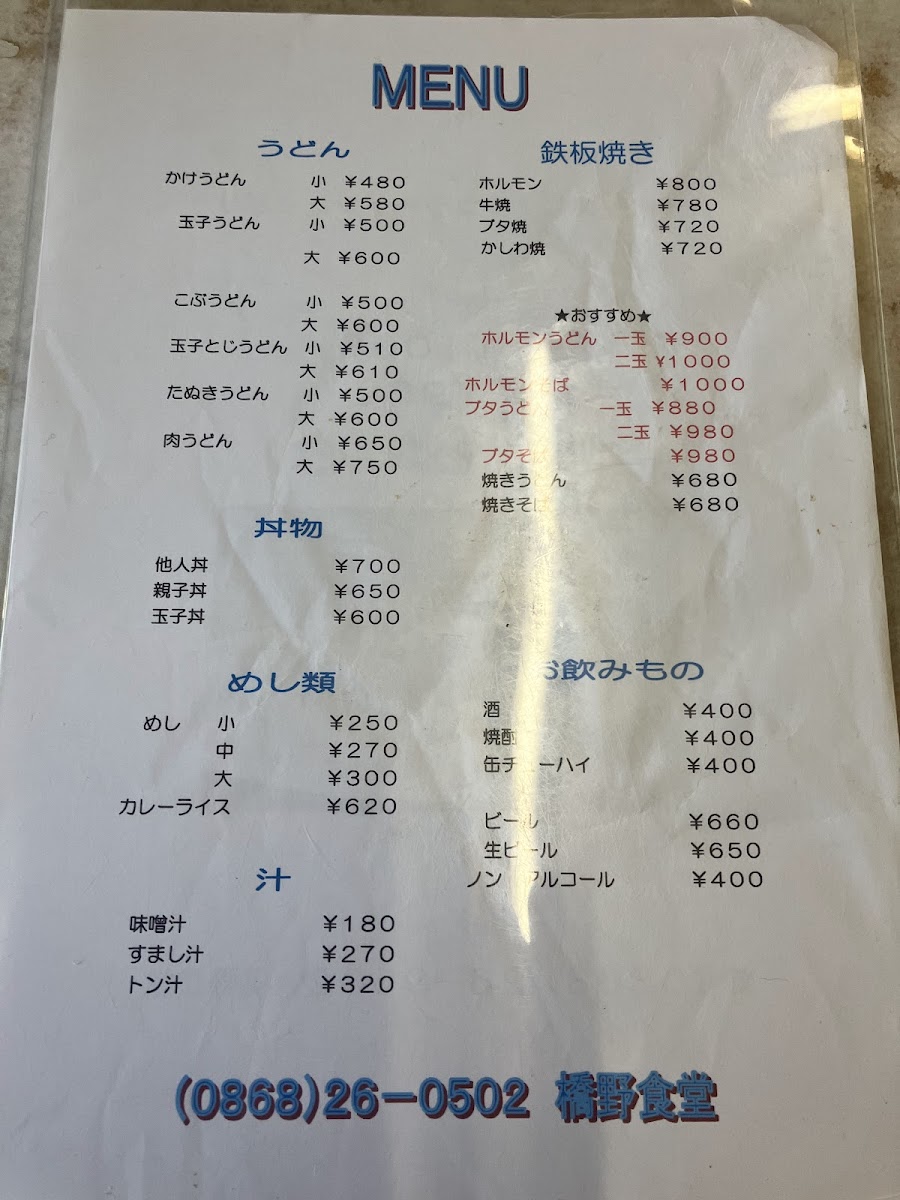 MENU
うどん
かけうどん 小 ￥480
大 ￥580
玉子うどん 小 ￥500
大 ￥600
こぶうどん 小 ￥500
大 ￥600
玉子とじうどん 小 ￥510
大 ￥610
たぬきうどん 小 ￥500
大 ￥600
肉うどん 小 ￥650
大 ￥750
丼物
他人丼 ￥700
親子丼 ￥650
玉子丼 ￥600
めし類
めし 小 ￥250
中 ￥270
大 ￥300
カレーライス ￥620
汁
味噌汁 ￥180
すまし汁 ￥270
トン汁 ￥320
鉄板焼き
ホルモン ￥800
牛焼 ￥780
ブタ焼 ￥720
かしわ焼 ￥720
★おすすめ★
ホルモンうどん 一玉 ￥900
二玉 ¥1000
ホルモンそば ￥1000
ブタうどん 一玉 ￥880
二玉 ￥980
ブタそば ￥980
焼きうどん ￥680
焼きそば ￥680
お飲みもの
酒 ￥400
焼酎 ￥400
缶チューハイ ￥400
ビール ￥660
生ビール ￥650
ノンアルコール ￥400
(0868)26－0502 橋野食堂